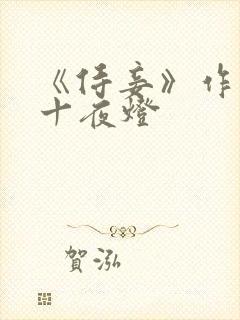 《侍妾》作
十夜燈
賀泓